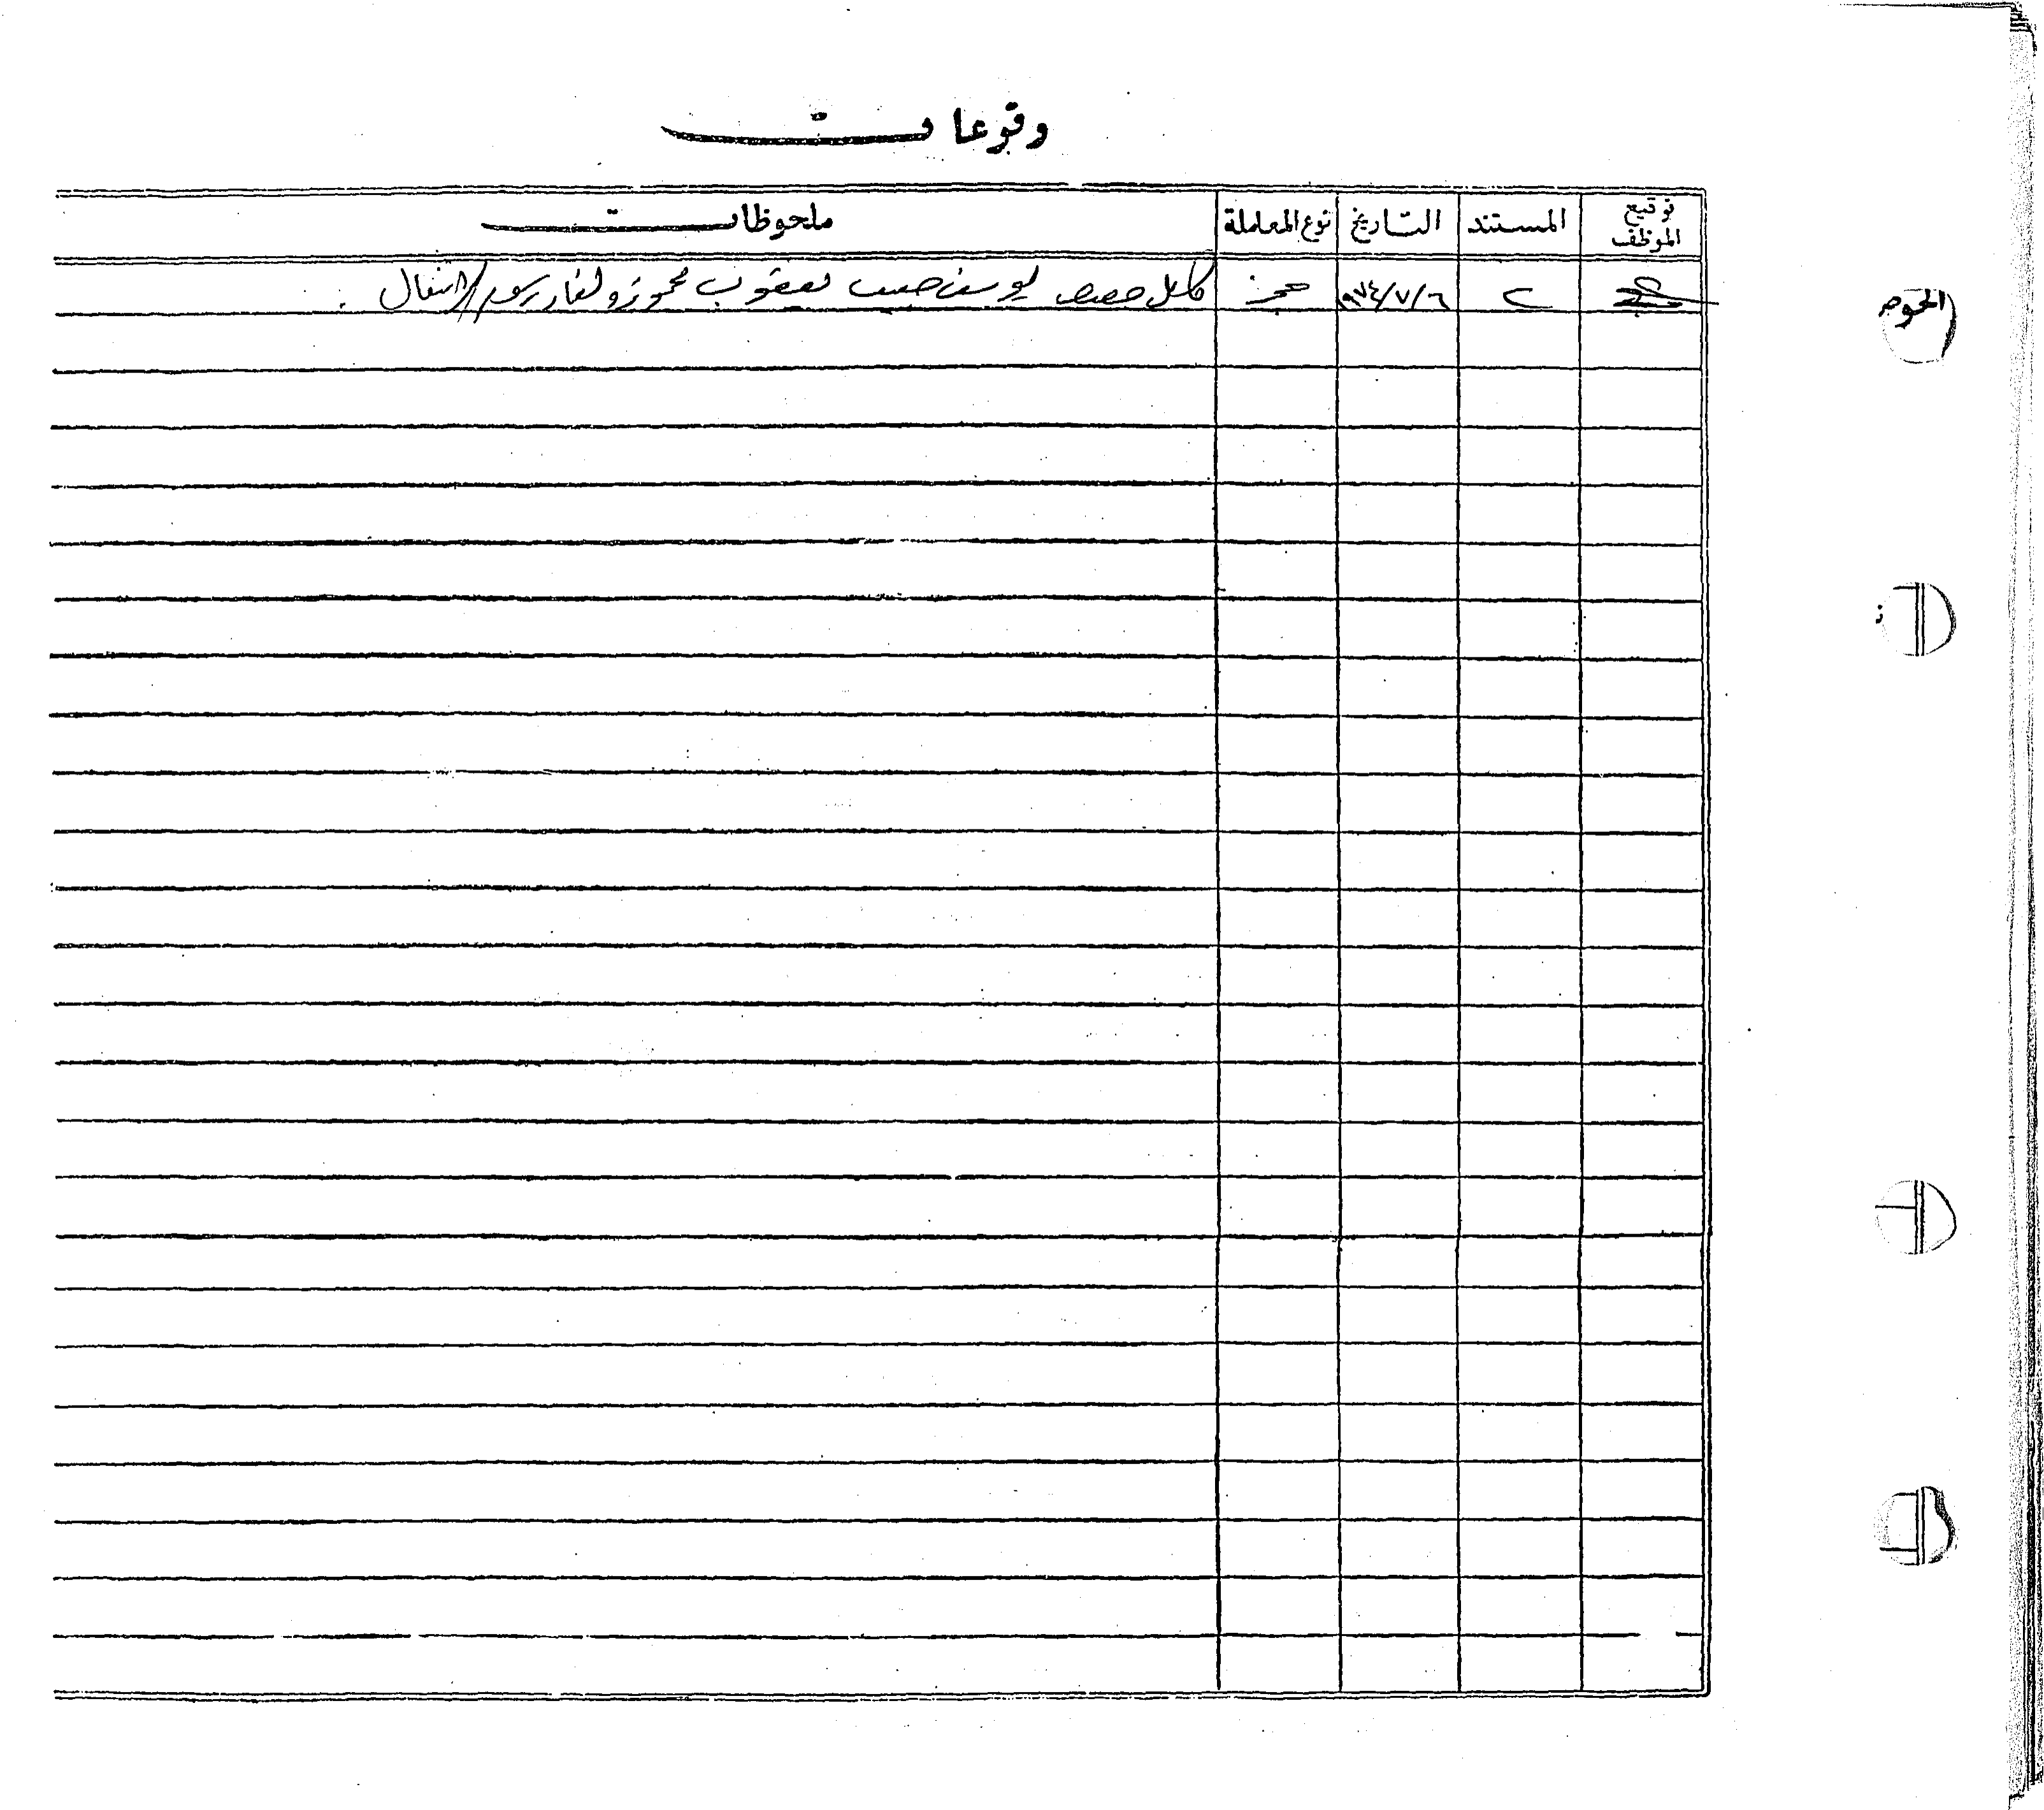 وقوعات
توقيع الموظف المستند التاريخ نوع المعاملة ملحوظات
٢ ٩٧٤/٧/٦ حجز كامل حصص يوسف حبيب يعقوب محجوزة لقاء رسوم الانتقال
الحوض